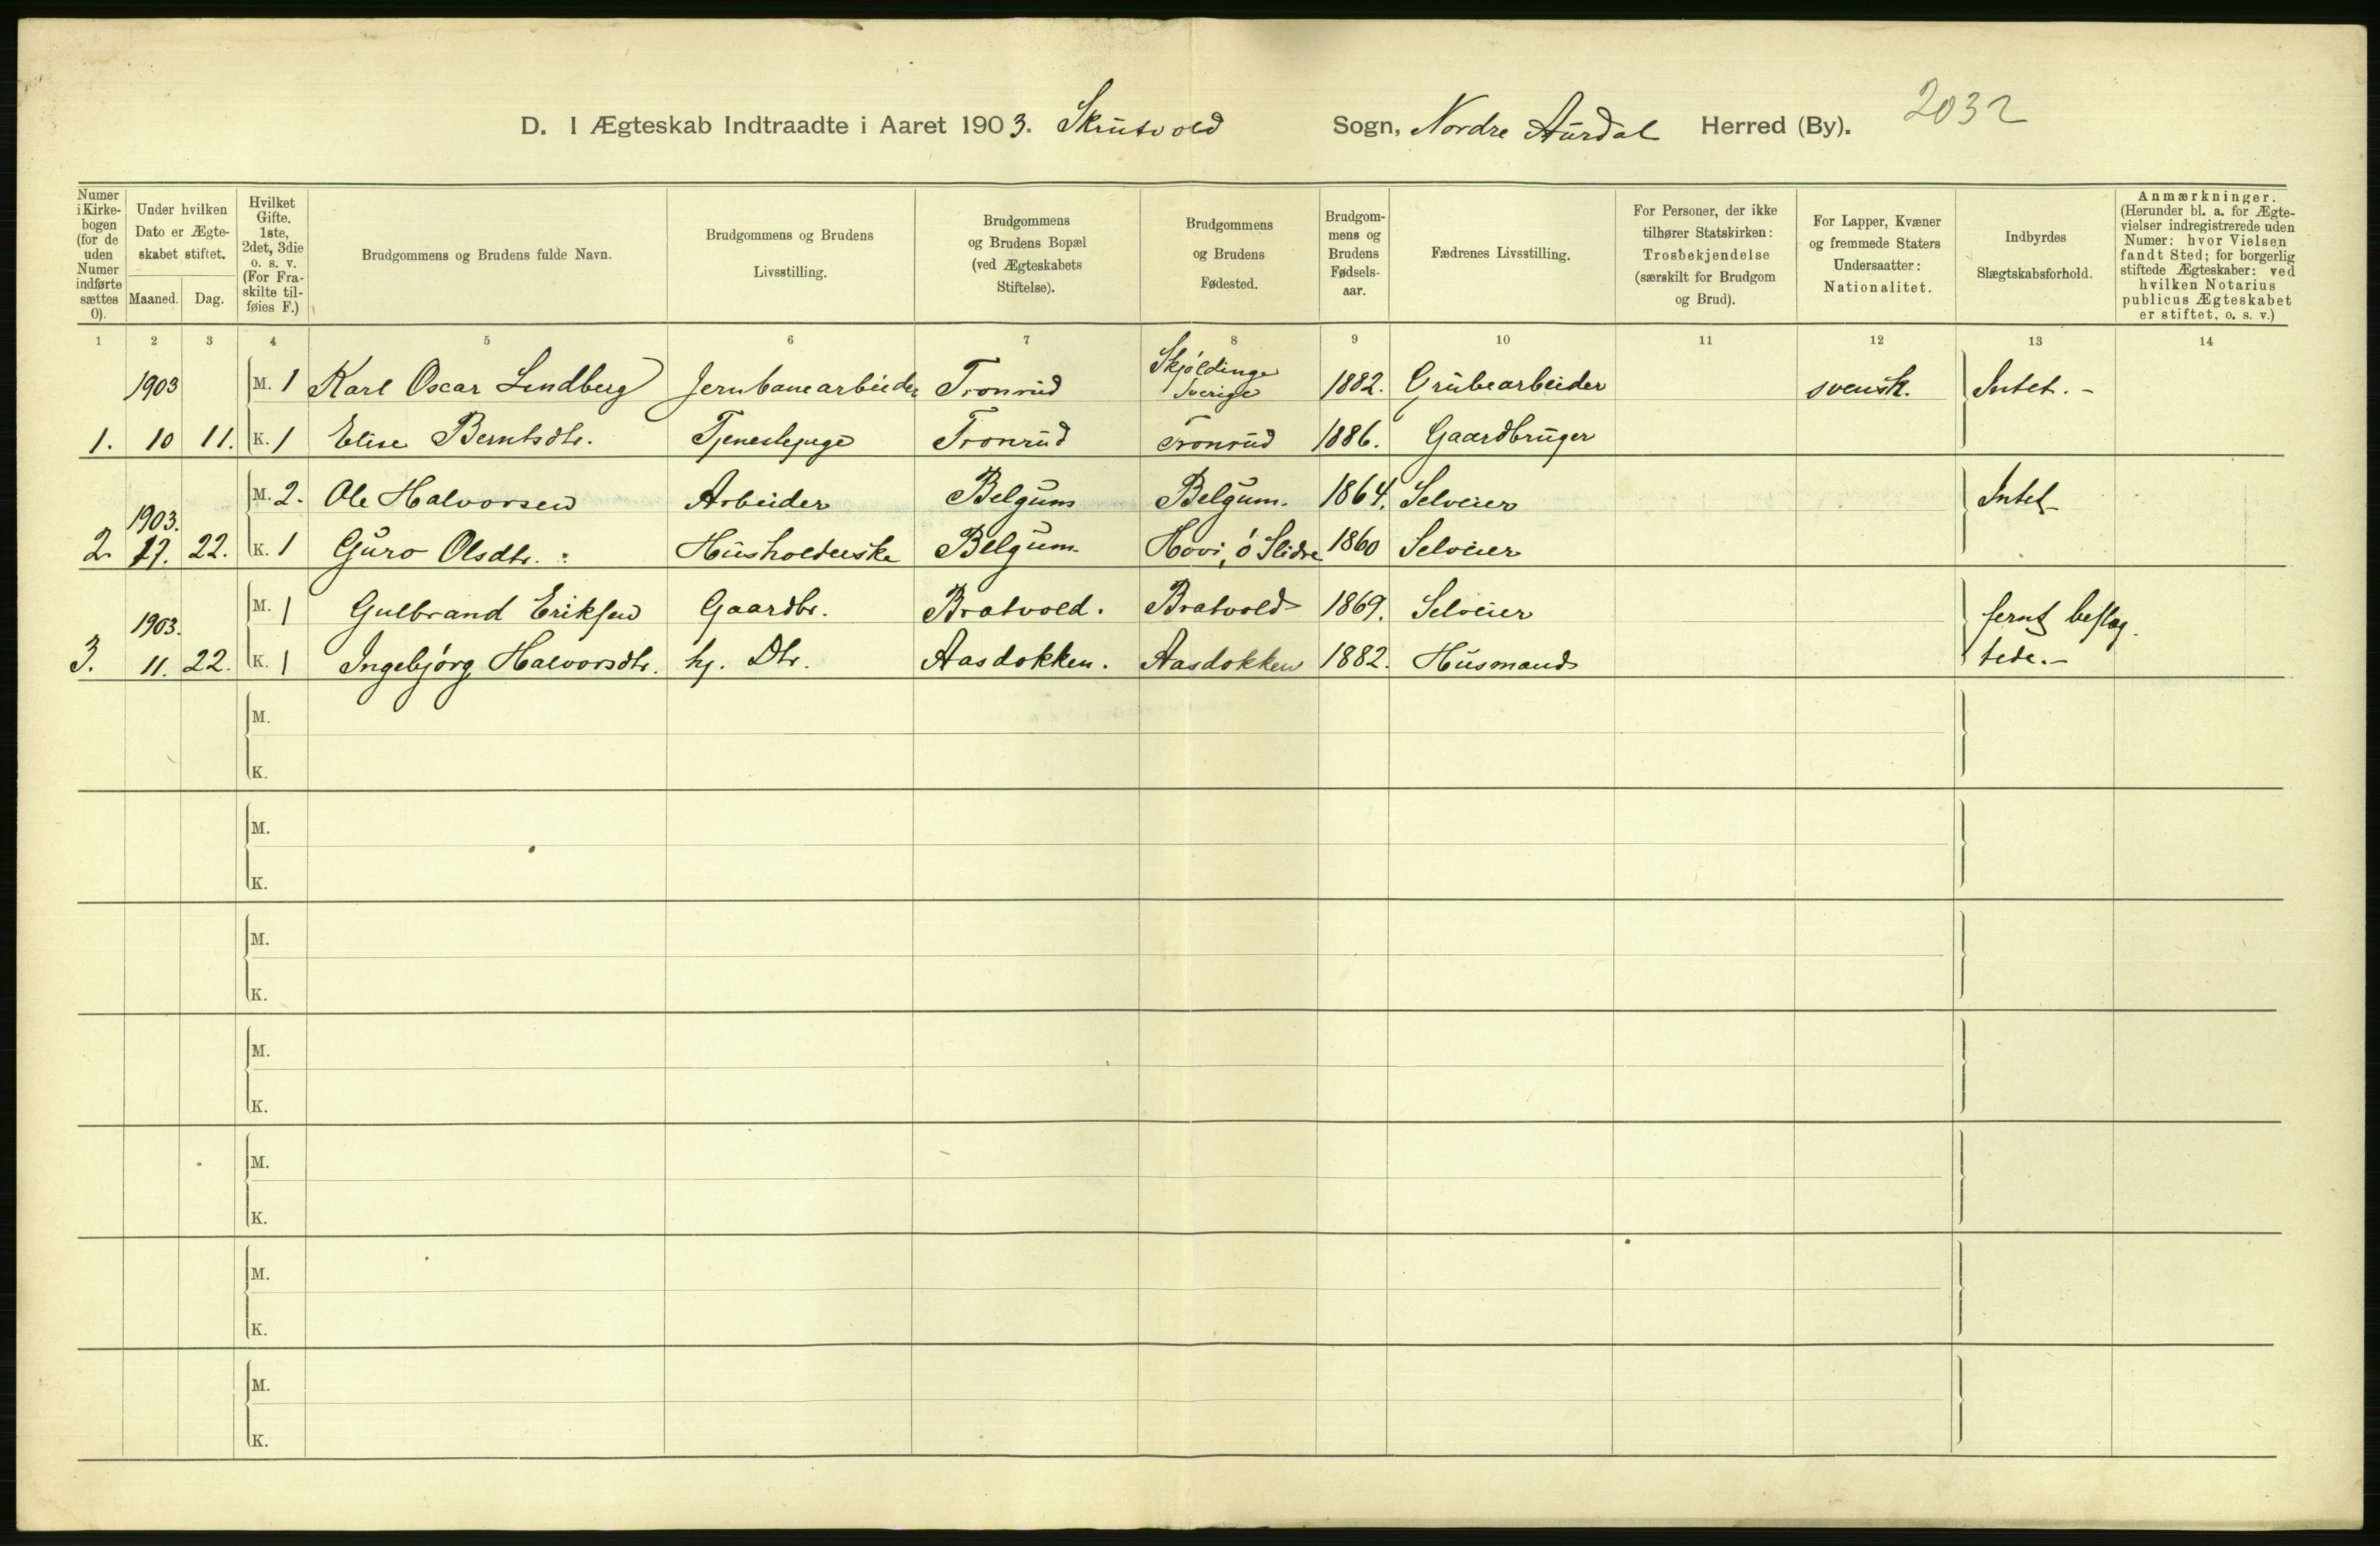 D. I Ægteskab Indtraadte i Aaret 1903. Skrutvold Sogn, Nordre Aurdal Herred (By). 2032
Numer i Kirke-bogen (for de uden Numer indførte sættes 0).
Under hvilken Dato er Ægte-skabet stiftet.
Maaned. Dag.
Hvilket Gifte. 1ste, 2det, 3die o. s. v. (For Fra-skilte til-føies F.)
Brudgommens og Brudens fulde Navn.
Brudgommens og Brudens Livsstilling.
Brudgommens og Brudens Bopæl (ved Ægteskabets Stiftelse).
Brudgommens og Brudens Fødested.
Brudgom-mens og Brudens Fødsels-aar.
Fædrenes Livsstilling.
For Personer, der ikke tilhører Statskirken: Trosbekjendelse (særskilt for Brudgom og Brud).
For Lapper, Kvæner og fremmede Staters Undersaatter: Nationalitet.
Indbyrdes Slægtskabsforhold.
Anmærkninger. (Herunder bl. a. for Ægte-vielser indregistrerede uden Numer: hvor Vielsen fandt Sted; for borgerlig stiftede Ægteskaber: ved hvilken Notarius publicus Ægteskabet er stiftet, o. s. v.)
1 2 3 4 5 6 7 8 9 10 11 12 13 14
1903 M. 1 Karl Oscar Lindberg Jernbanearbeider Tronrud Skjöldinge Sverige 1882. Grubearbeider svensk. Intet. -
1. 10 11. K. 1 Elise Berntsdtr. Tjenestepige Tronrud Tronrud 1886. Gaardbruger
1903. M. 2. Ole Halvorsen Arbeider Belgum Belgum. 1864. Selveier Intet
2. 11. 22. K. 1 Guro Olsdtr. : Husholderske Belgum Hovi, ö Slidre 1860 Selveier
1903. M. 1 Gulbrand Eriksen Gaardbr. Bratvold. Bratvold 1869. Selveier fernt beslæg-
3. 11. 22. K. 1 Ingebjörg Halvorsdtr. hj. Dtr. Aasdokken. Aasdokken 1882. Husmand tede. -
M.
K.
M.
K.
M.
K.
M.
K.
M.
K.
M.
K.
M.
K.